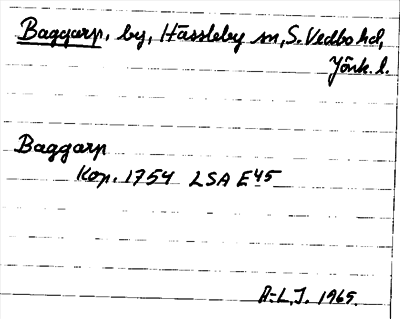 Baggarp, by, Hässleby sn, S. Vedbo hd,
Jönk. l.
Baggarp
Kop. 1754 LSA E45
A-L.J. 1965.